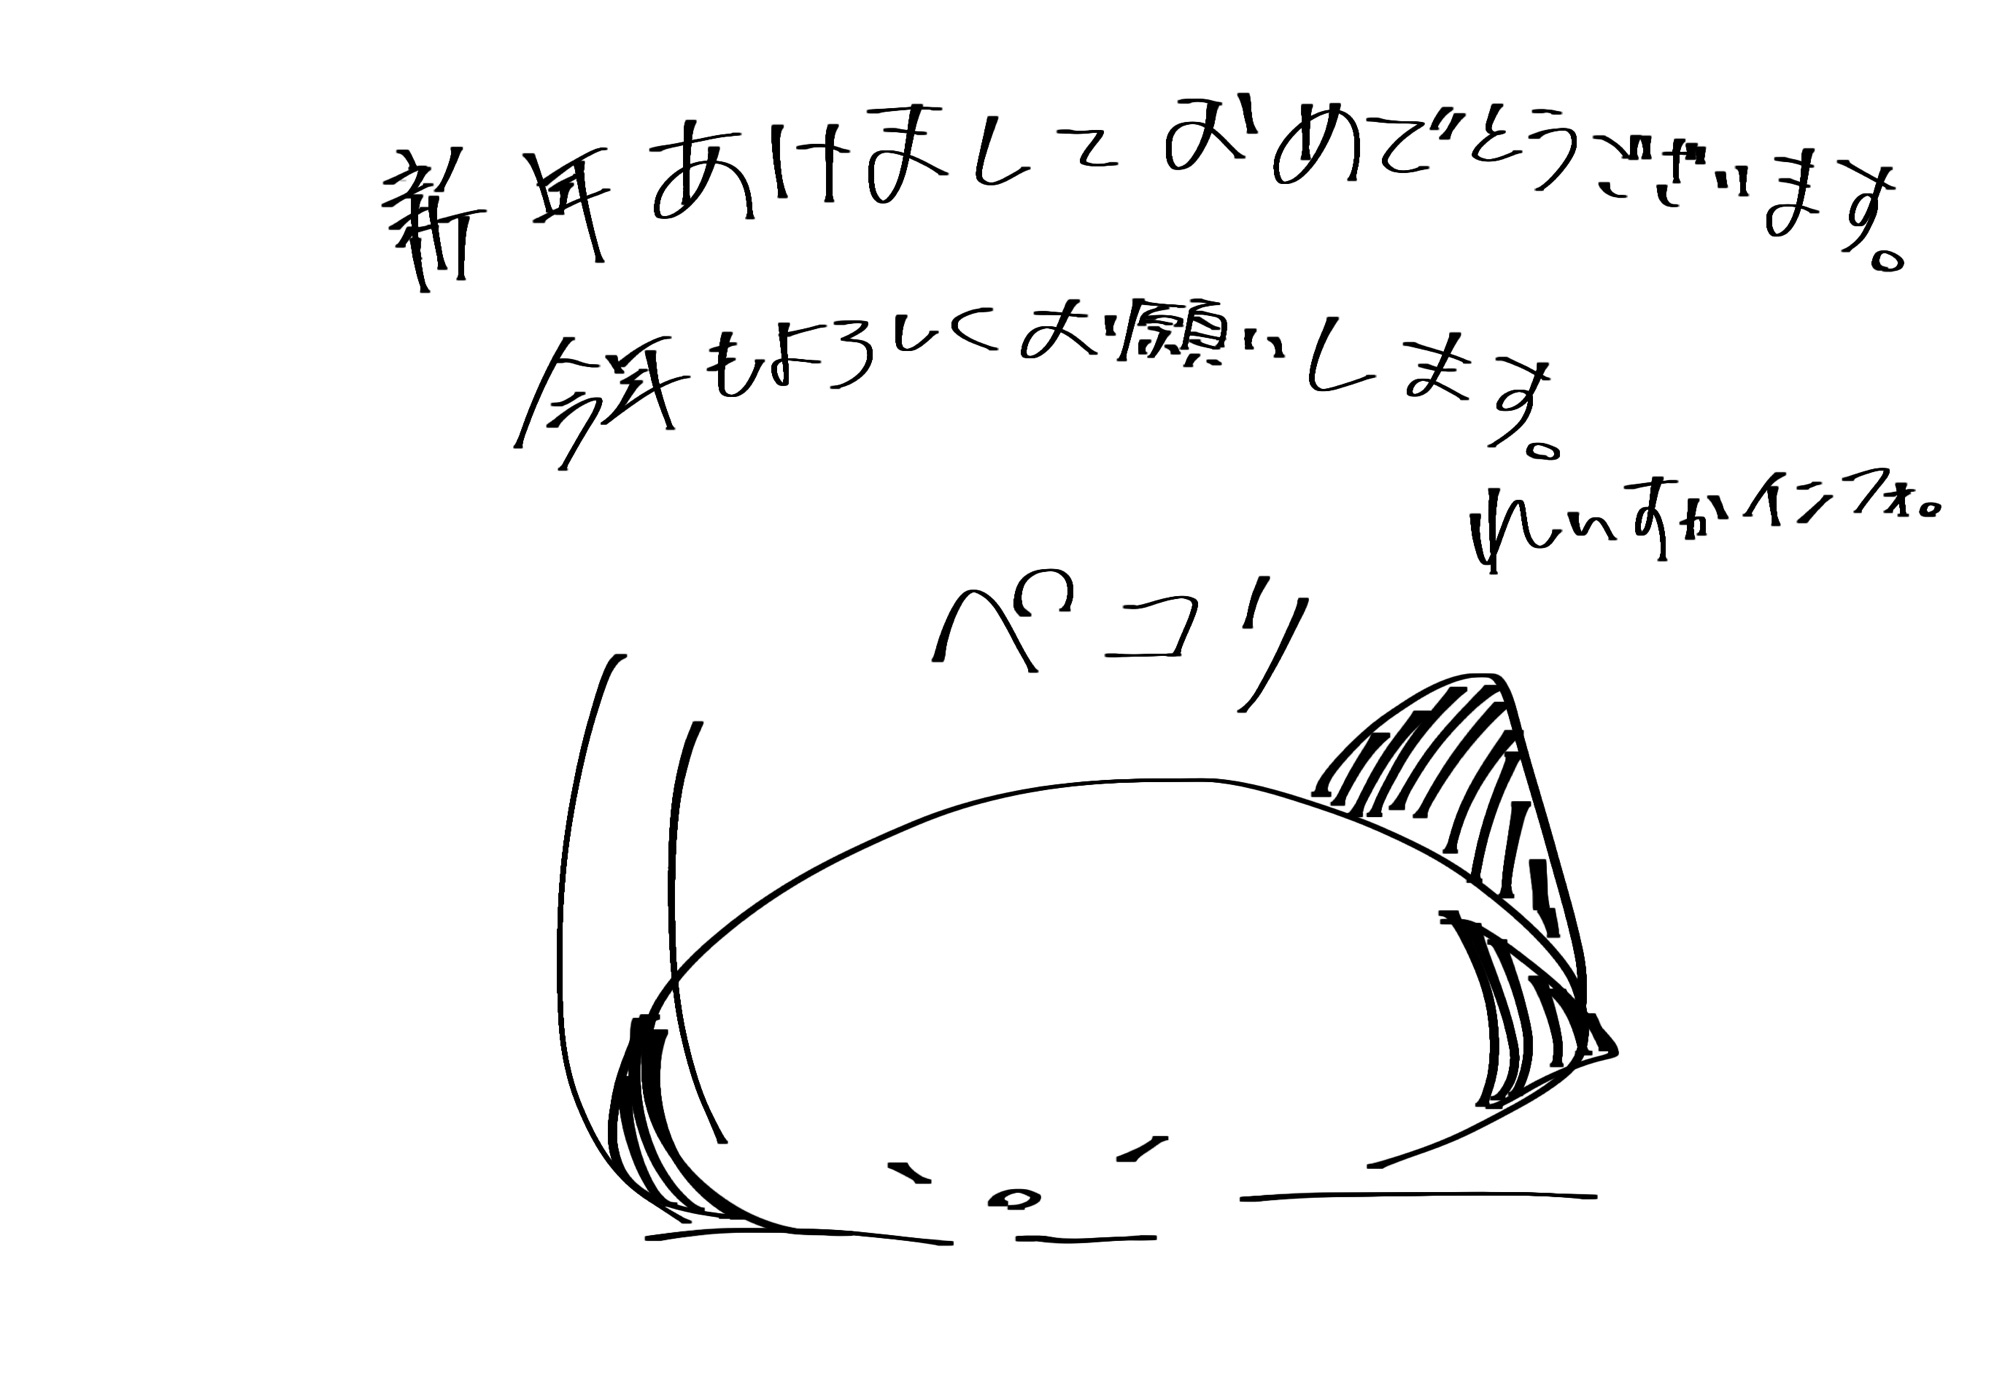 新年あけましておめでとうございます。
今年もよろしくお願いします。
れいすかインフォ。
ペコリ